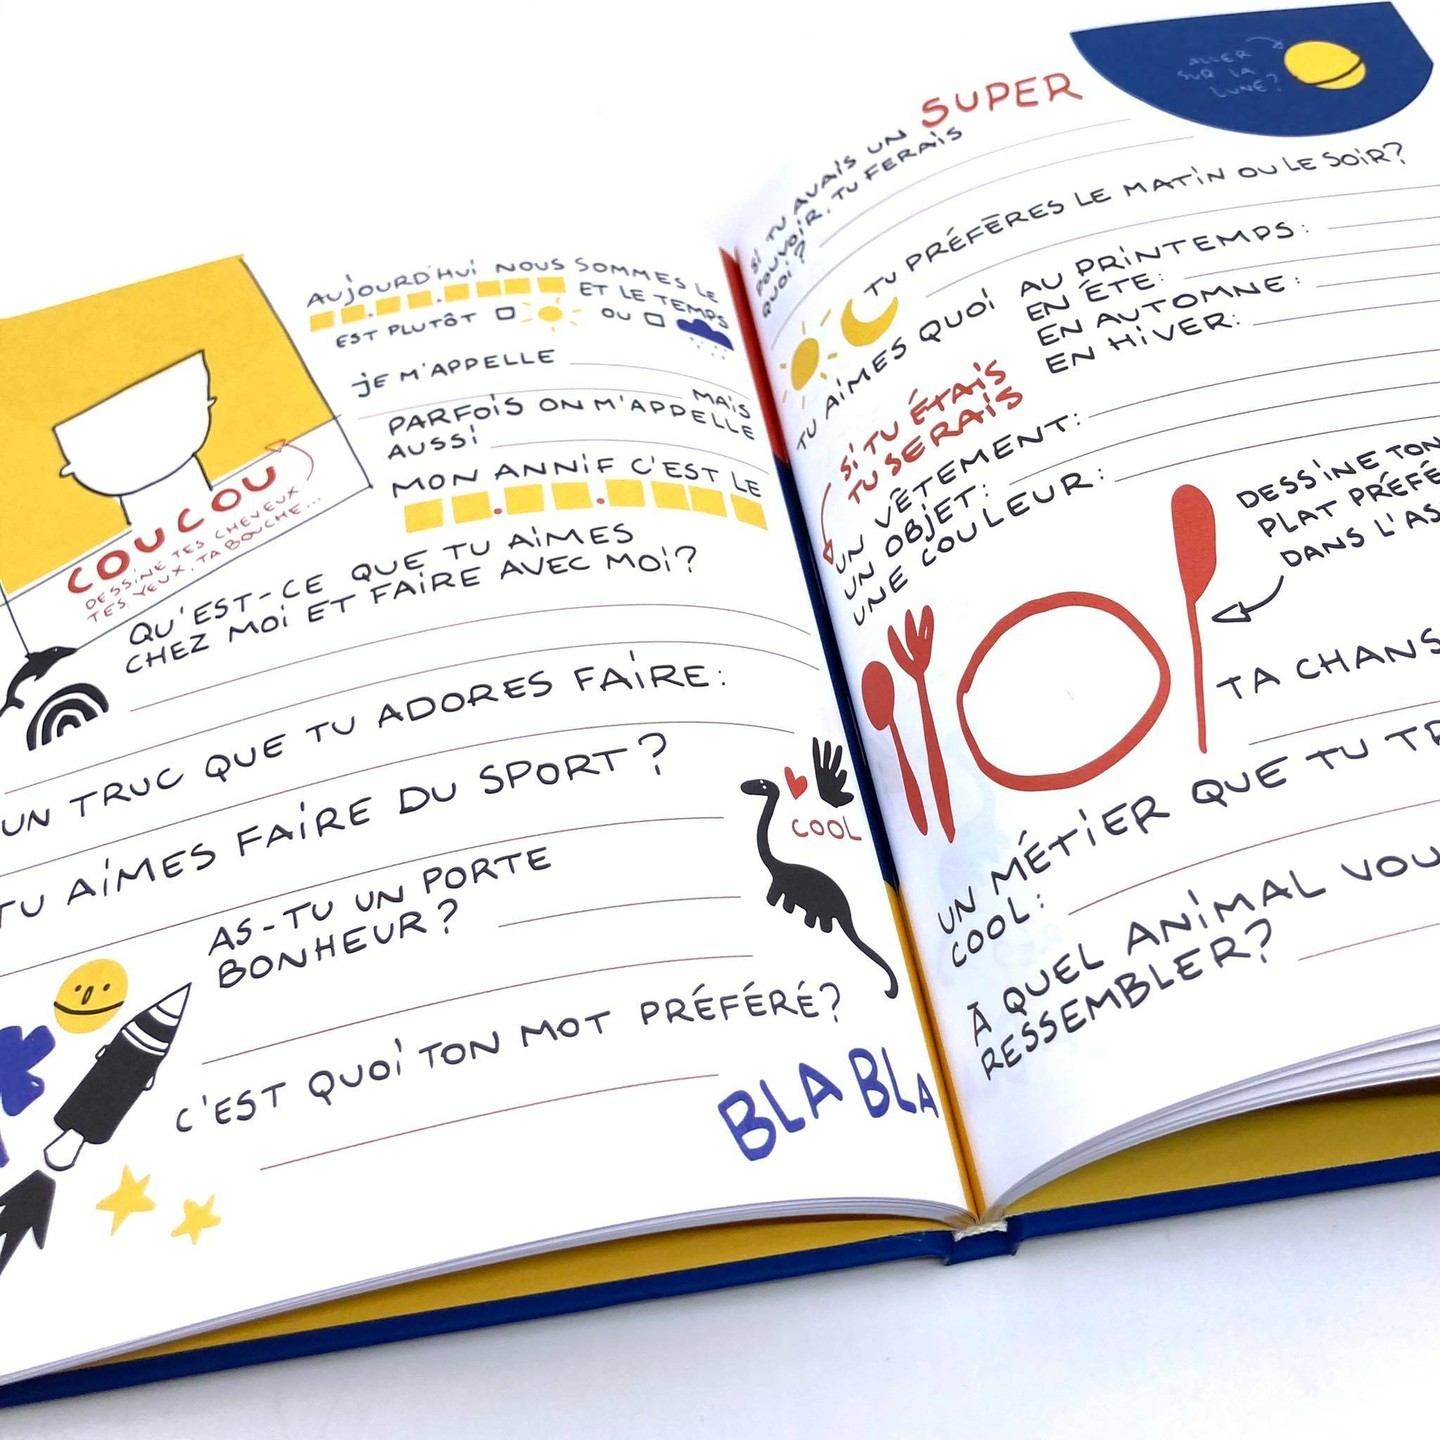 AUJOURD'HUI NOUS SOMMES LE
ET LE TEMPS
EST PLUTÔT OU
JE M'APPELLE
MAIS
PARFOIS ON M'APPELLE
AUSSI
MON ANNIF C'EST LE
COUCOU
DESSINE TES CHEVEUX
TES YEUX, TA BOUCHE...
QU'EST-CE QUE TU AIMES
CHEZ MOI ET FAIRE AVEC MOI?
UN TRUC QUE TU ADORES FAIRE:
TU AIMES FAIRE DU SPORT?
COOL
AS-TU UN PORTE
BONHEUR?
C'EST QUOI TON MOT PRÉFÉRÉ?
BLA BLA
ALLER
SUR LA
LUNE?
SI TU AVAIS UN SUPER
POUVOIR, TU FERAIS
QUOI?
TU PRÉFÈRES LE MATIN OU LE SOIR?
TU AIMES QUOI AU PRINTEMPS:
EN ÉTÉ:
EN AUTOMNE:
EN HIVER:
SI TU ÉTAIS
TU SERAIS
UN VÊTEMENT:
UN OBJET:
UNE COULEUR:
DESSINE TON
PLAT PRÉFÉ
DANS L'AS
TA CHANS
UN MÉTIER QUE TU TR
COOL:
À QUEL ANIMAL VOU
RESSEMBLER?